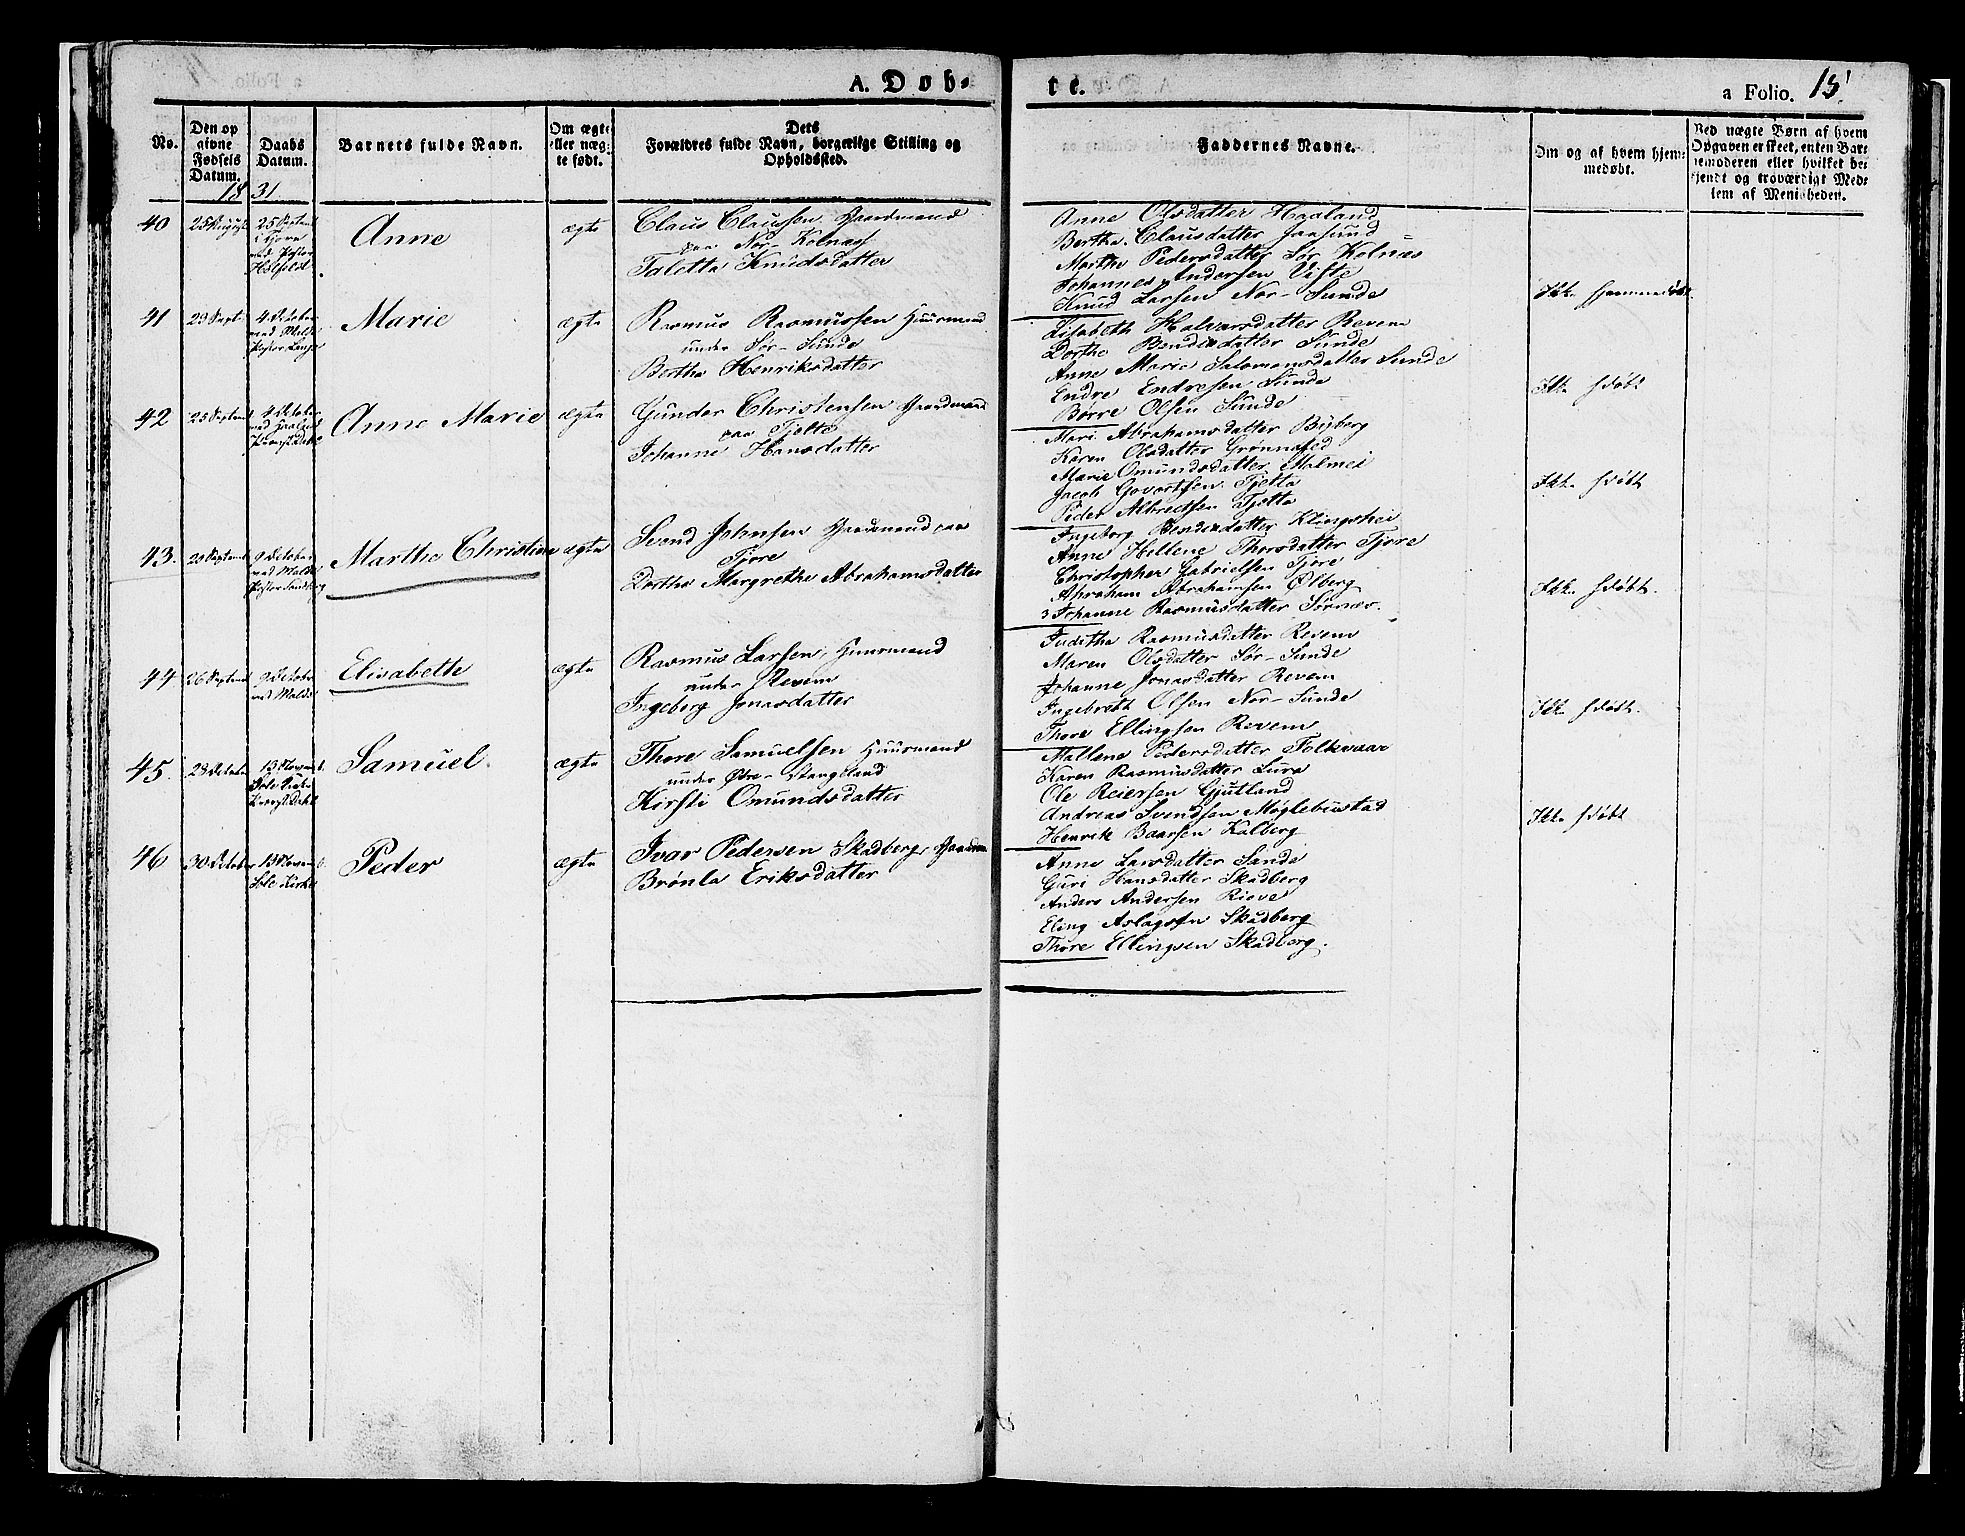 A. Døb-
te.
a Folio. 15
No.
Den op
givne
Fødsels
Datum.
Daabs
Datum.
Barnets fulde Navn.
Om ægte
eller uæg-
te født.
Dets
Forældres fulde Navn, borgerlige Stilling og
Opholdssted.
Faddernes Navne.
Om og af hvem hjem-
medøbt.
Ved uægte Børn af hvem
Opgaven er skeet, enten Bar-
nemoderen eller hvilket be-
kjendt og troværdigt Med-
lem af Menigheden.
1831
40
25 August
25 Septem
i Tjora
ved Pastor
Anne
ægte
Claus Claussen Gaardmand
paa Nor-Kolnæs
Taletta Knudsdatter
Anne Olsdatter Haaland
Bertha Clausdatter Jaasund
Martha Pedersdatter Sør Kolnæs
Johannes Andersen Viste
Knud Larsen Nor-Sunde
Ikke hjemmedøbt
41
29 Sept
4 October
ved Malde
Pastor
Marie
ægte
Rasmus Rasmussen Huusmand
under Sør-Sunde
Bertha Henriksdatter
Lisabeth Halvorsdatter Revem
Dorthe Bendixdatter Sunde
Anne Marie Salomonsdatter Sunde
Endre Endresen Sunde
Børre Olsen Sunde
Ikke hdøbt
42
25 Septemb
4 October
ved
Anne Marie
ægte
Gunder Christensen Gaardmand
paa Tjelta
Johanne Hansdatter
Mari Abrahamsdatter Byberg
Karen Olsdatter Grønnested
Marie Omundsdatter Malmei
Jacob Govertsen Tjelta
Peder Albrectsen Tjelta
Ikke hdøbt
43.
29 Septemb
9 October
ved Malde
Pastor Sandberg
Marthe Christine
ægte
Svend Johnsen Gaardmand paa
Tjore
Dorthe Margrethe Abrahamsdatter
Ingeborg Bendixdatter Klingshei
Anne Hellene Thorsdatter Tjore
Christopher Gabrielsen Tjore
Abraham Abrahamsen Ølberg
Johanne Rasmusdatter Sørnæs.
Ikke hdøbt.
44
26 Septemb
9 October
ved Malde
Elisabeth
ægte
Rasmus Larsen, Huusmand
under Revem
Ingeborg Jonasdatter
Juditha Rasmusdatter Revem
Maren Olsdatter Sør-Sunde
Johanne Jonasdatter Revem
Ingebreth Olsen Nor-Sunde
Thore Ellingsen Revem
Ikke hdøbt.
45.
23 October
13 Novemb.
Sole Kirke
Samuel.
ægte
Thore Samuelsen Huusmand
under Øvre-Stangeland
Kirsti Omundsdatter
Mallene Pedersdatter Folkvaar
Karen Rasmusdatter Lura
Ole Reiersen Gjutland
Andreas Svendsen Møglebustad
Henrik Baarsen Kalberg
Ikke hdøbt
46
30 October
13 Novemb.
Sole Kirke
Peder
ægte
Ivar Pedersen Skadberg, Gaardm
Brønla Eriksdatter
Anne Larsdatter Sande
Guri Hansdatter Skadberg
Anders Andersen Risve
Eling Aslagsen Skadberg
Thore Ellingsen Skadberg.